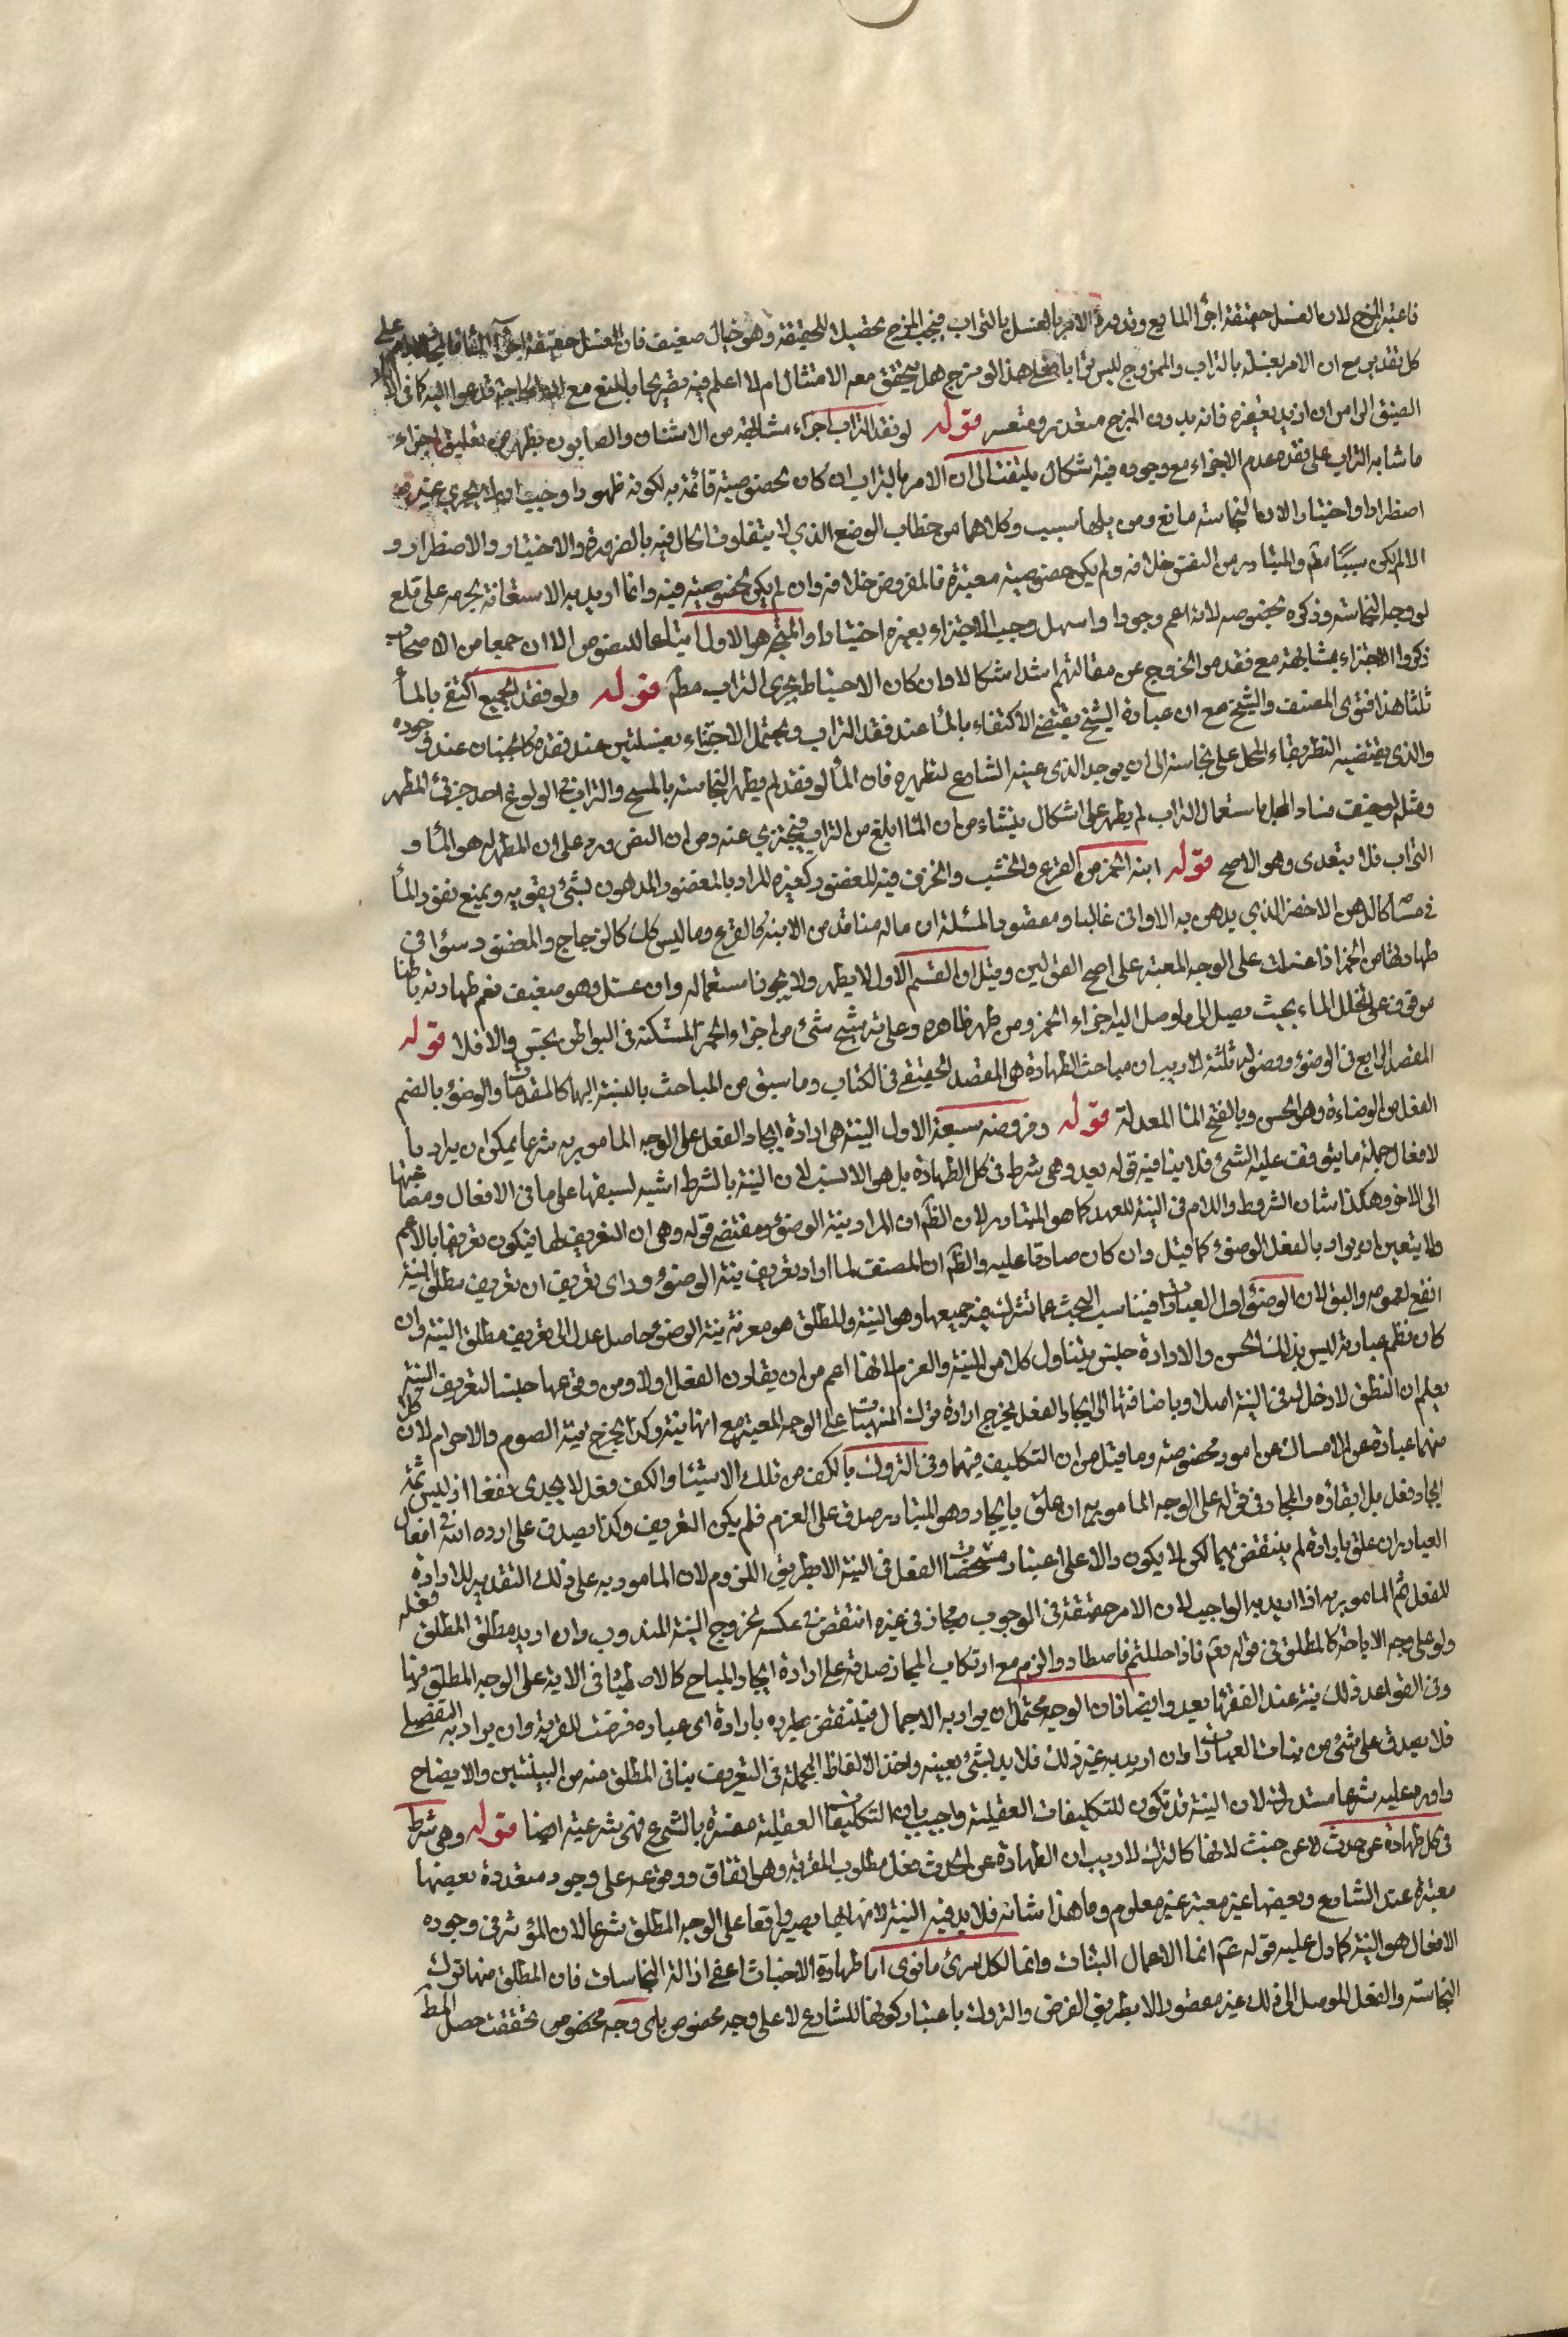 فاعتبر المزج لان الغسل حقيقة اجراء المايع وقد ورد الامر بالغسل بالتراب فيجب المزج تحصيلا للحقيقة وهو خيال ضعيف فان الغسل حقيقة اجراء الماء فالمجاز لازم على
كل تقدير مع ان الامر بغسله بالتراب والممزوج ليس ترابا فعلى هذا لو مزج هل يتحقق معه الامتثال ام لا اعلم فيه تصريحا بالمنع مع
الضيق الا من ان اريد بغيره فانه بدون المزج متعذر ومتعسر قوله لو فقد التراب اجزاء مشابهة من الاشنان والصابون يظهر من تعليق اجزاء
ما شابه التراب على فقده عدم الاجزاء مع وجوده فيه اشكال يلتفت الى ان الامر بالتراب ان كان لخصوصية قائمة به لكونه طهورا وجب ان لا يجزي غيره
اضطرارا واختيارا لان النجاسة مانع ومزيلها سبب وكلاهما من خطاب الوضع الذي لا يتفاوت الحال فيه بالضرورة والاختيار والاضطرار و
الا لم يكن سببا مطم والمتبادر من النص خلافه ولم يكن خصوصية معتبرة فالمفروض خلافه وان لم يكن لخصوصية فيه وانما اريد به الاستعانة بجرمه على قلع
لزوجة النجاسة وذكره بخصوصه لانه اعم وجودا واسهل وجب الاجتزاء بغيره اختيارا والمتجه هو الاول اتباعا للنصوص الا ان جمعا من الاصحاب
ذكروا الاجتزاء بمشابهة مع فقده والخروج عن مقالتهم اشد اشكالا وان كان الاحتياط تحري التراب مطم قوله ولو فقد الجميع اكتفى بالماء
ثلثا هذا فتوى المصنف والشيخ مع ان عبارة الشيخ يقتضي الاكتفاء بالماء عند فقد التراب ويحتمل الاجتزاء بغسلتين عند فقده كالجبنان عند وجوده
والذي يقتضيه النظر بقاء المحل على نجاسته الى ان يوجد الذي عينه الشارع لتطهيره فان الماء لو فقد لم يطهر النجاسة بالمسح والتراب في الولوغ احد جزئي المطهر
ومثله لو خيف فساد المحل باستعمال التراب لم يطهر على اشكال ينشاء من ان الماء ابلغ من التراب فيجتزي عنه ومن ان النص ورد على ان المطهر له هو الماء و
التراب فلا يتعدى وهو الاصح قوله انية الخمر من القرع والخشب والخزف غير المغضور كغيره المراد بالمغضور المدهون بشئ يقويه ويمنع نفوذ الماء
في مشاكالدهن الاخضر الذي يدهن به الاواني غالبا ومقصود المسئلة ان ماله منافذ من الانية كالقرع وما ليس كك كالزجاج والمغضور سواء في
طهارتها من الخمر اذا غسلت على الوجه المعتبر على اصح القولين وقيل ان القسم الاول لا يطهر ولا يجوز استعماله وان غسل وهو ضعيف نعم طهارته باطنا
موقوف على تخلل الماء بحيث يصل الى ما وصل اليه اجزاء الخمر ومن طهر ظاهره وعلى ثه مشبح شئ من اجزاء الخمر المستكنة في البواطن نجس والا فلا قوله
المقصد الرابع في الوضوء وفصوله ثلثة لا ريب ان مباحث الطهارة هي المقصد الحقيقي في الكتاب وما سبق من المباحث بالنسبة اليها كالمقدمات والوضوء بالضم
الفعل من الوضاءة وهو الحسن وبالفتح الماء المعد له قوله وفروضه سبعة الاول النية هي ارادة ايجاد الفعل على الوجه المامور به شرعا يمكن ان يراد با
لافعال جملة ما يتوقف عليه الشئ فلا ينافيه قوله بعد وهي شرط في كل الطهارة بل هو الانسب لان النية بالشرط اشبه لسبقها على ما في الافعال ومصاحبتها
الى الاخر وهكذا شان الشروط واللام في النية للعهد كما هو المتبادر لان الظم ان المراد بنية الوضوء ومقتضى قوله وهي ان التعريف لها فيكون تعريفا بالاعم
ولا يتعين ان يراد بالفعل الوضوء كما قيل وان كان صادقا عليه والظم ان المصنف لما اراد تعريف نية الوضوء وراى تعريف ان تعريف مطلق النية
انفع لعمومه واليق لان الوضوء اول العبادات فيناسب البحث عما تشترك فيه جميعها وهو النية والمطلق هو معرفة نية الوضوء حاصل عدل الى تعريف مطلق النية وان
كان نظم عبارته ليس بذلك الحسن والارادة جنس يتناول كلا من النية والعزم لانها اعم من ان يقارن الفعل اولا ومن وقوعها جنسا لتعريف النية
يعلم ان النطق لا دخل له في النية اصلا وباضافتها الى ايجاد الفعل يخرج ارادة ترك المنهيات على الوجه المعتبر مع انها نية وكذا يخرج نية الصوم والاحرام لان كلا
منهما عبارة عن الامساك عن امور مخصوصة وما قيل من ان التكليف فيهما وفي التروك بالكف عن تلك الاشياء والكف فعل لا يجدى نفعا اذ ليس ثمة
ايجاد فعل بل ابقاؤه والمجاز في قوله على الوجه المامور به ان علق بايجاد وهو المتبادر صدق على العزم فلم يكن التعريف وكذا يصدق على اراده الله في افعال
العباد وان علق بارادة لم ينتقض بهما لكن لا يكون دالا على اعتبار مشخصات الفعل في النية الا بطريق اللزوم لان المامور به على ذلك التقدير للارادة
للفعل ثم المامور به اذا اريد به الواجب لان الامر حقيقة في الوجوب مجاز في غيره انتقض في عكسه بخروج النية المندوب وان اريد مطلق المطلق فعله
ولو على وجه الاباحة كالمطلق في قوله تعم فاذا حللتم فاصطادوا لزم مع ارتكاب المجاز صدقه على ارادة ايجاد المباح كالاصطياد في الاية على الوجه المطلق منها
وفي القواعد فذلك نية عند الفقهاء بعيد وايضا فان الوجه محتمل ان يراد به الاجمال فينتقض طرده بارادة اى عباده فرضت للقربة وان يراد به التفصيل
فلا يصدق على شئ من نيات العبادات وان اريد به غير ذلك فلا يدل بشئ بعينه واخذ الالفاظ المجملة في التعريف ينافي المطلق منه من التبيين والايضاح
واورد عليه شرعا مستدل له لان النية قد تكون للتكليفات العقلية واجيب بان التكليفات العقلية معتبرة بالشرع فهي شرعية ايضا قوله وهي شرط
في كل طهارة عن حدث لا عن خبث لانها كالترك لا ريب ان الطهارة عن الحدث فعل مطلوب للقربة وهو اتفاق ووقوعه على وجوه متعددة بعضها
معتبرة عند الشارع وبعضها غير معتبر غير معلوم وما هذا شانه فلا بد فيه النية لانه انما يصير واقعا على الوجه المطلق شرعا لان المؤثر في وجوده
الافعال هو النية كما دل عليه قوله عم انما الاعمال بالنيات وانما لكل امرئ ما نوى اما طهارة الاخباث اعني ازالة النجاسات فان المطلق منها ترك
النجاسة والفعل الموصل الى ذلك غير مقصود الا بطريق الفرض والتروك باعتبار كونها للشارع لا على وجه مخصوص باى وجه مخصوص تحققت حصل المط